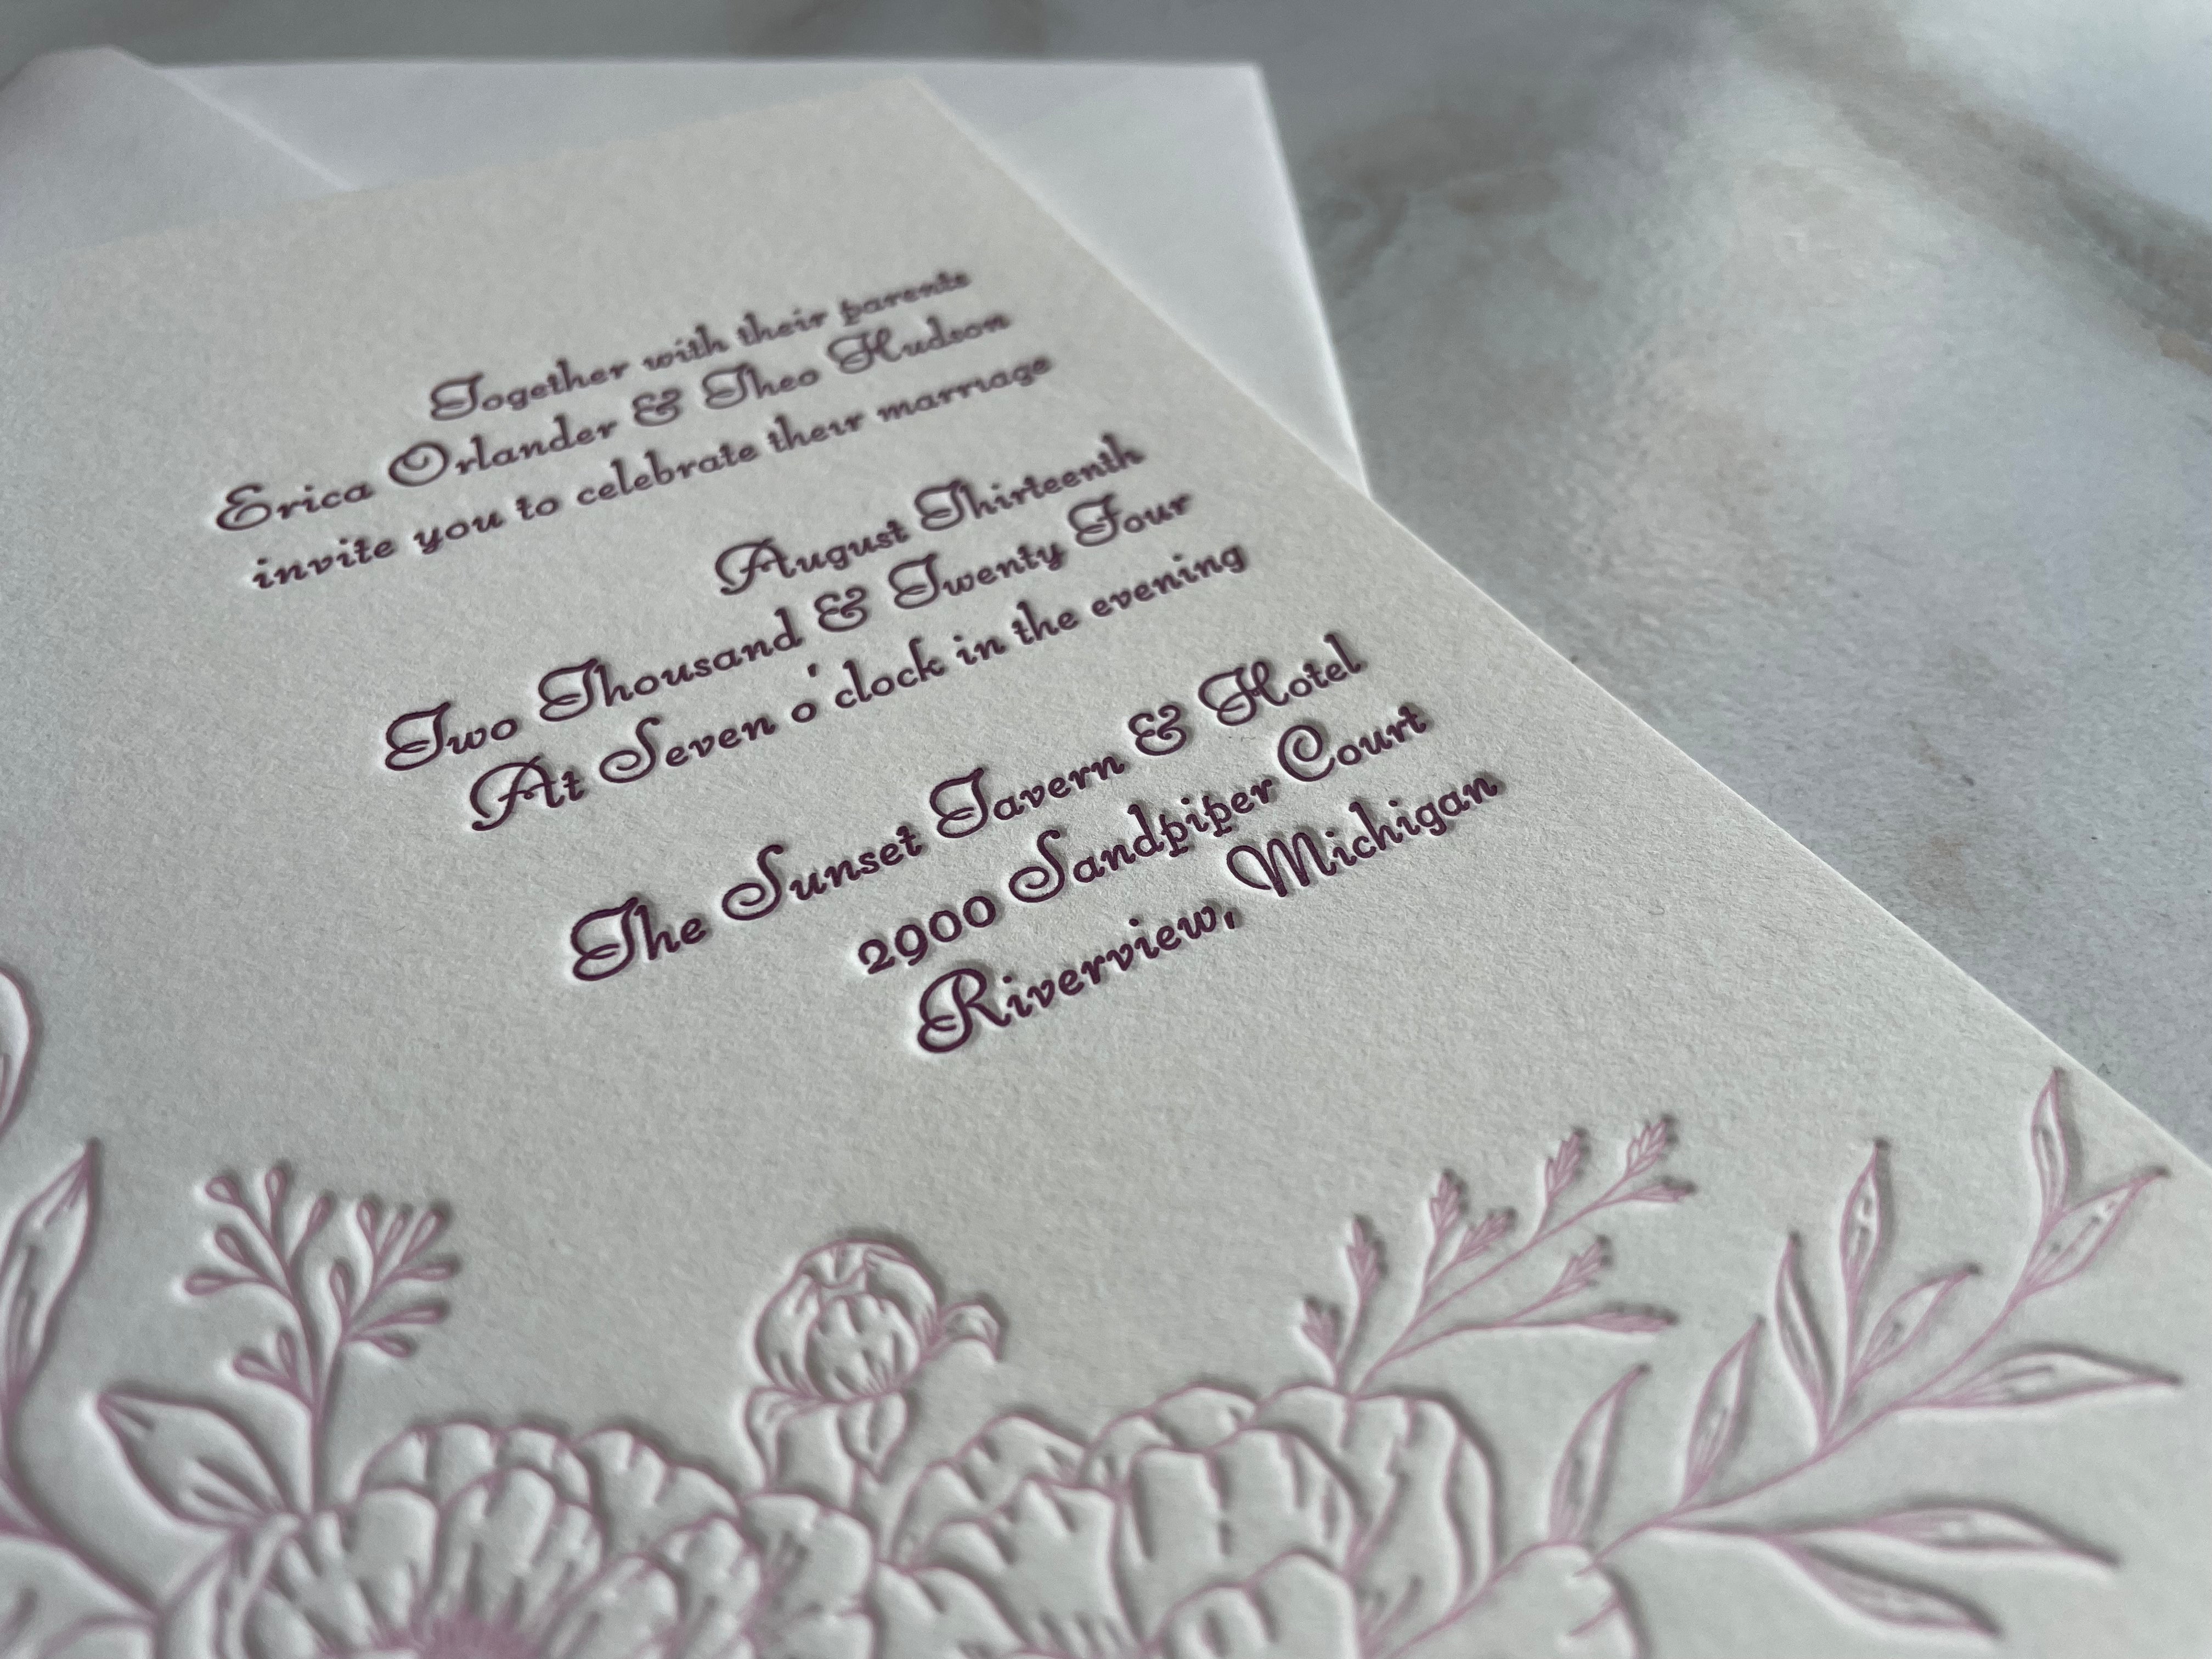 Together with their parents
Erica Orlander & Theo Hudson
invite you to celebrate their marriage
August Thirteenth
Two Thousand & Twenty Four
At Seven o'clock in the evening
The Sunset Tavern & Hotel
2900 Sandpiper Court
Riverview, Michigan